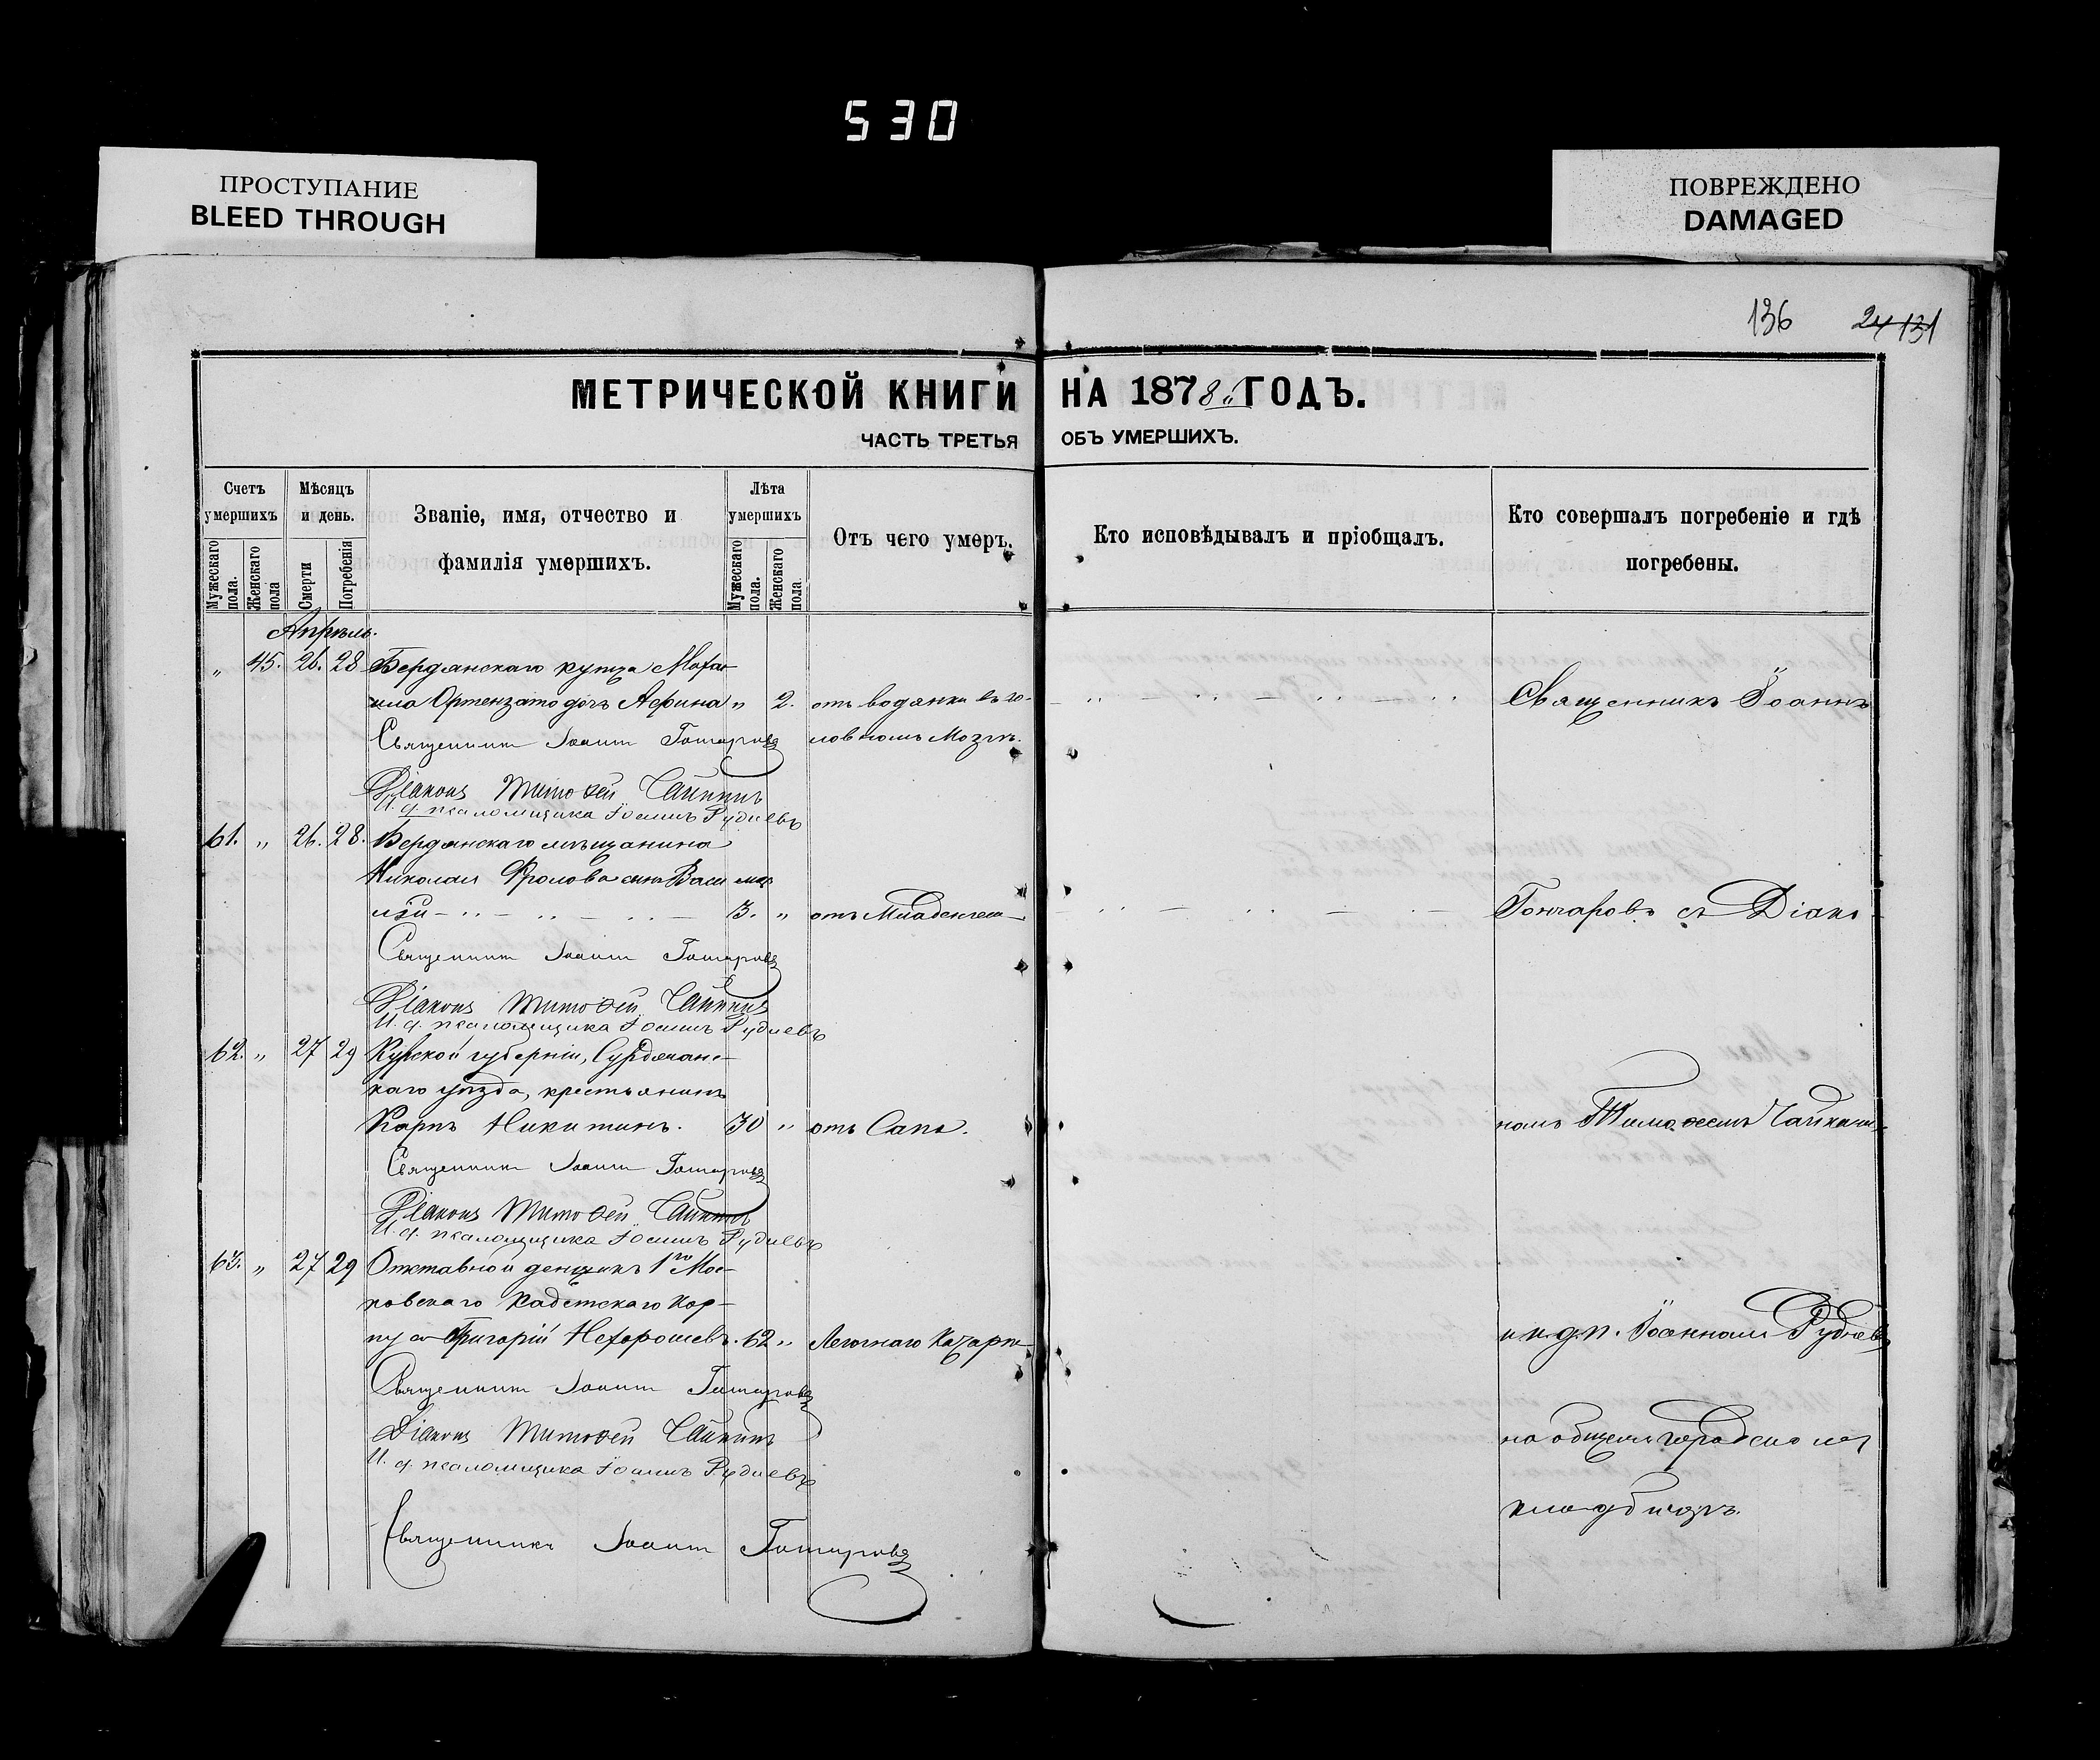 530
ПРОСТУПАНИЕ
BLEED THROUGH
ПОВРЕЖДЕНО
DAMAGED
136 24 131
МЕТРИЧЕСКОЙ КНИГИ НА 1878 ГОДЪ.
ЧАСТЬ ТРЕТЬЯ ОБЪ УМЕРШИХЪ.
Счетъ умершихъ
Мужескаго пола.
Женскаго пола
Мѣсяцъ и день.
Смерти
Погребенія
Званіе, имя, отчество и
фамилія умершихъ.
Лѣта умершихъ
Мужескаго пола.
Женскаго пола.
Отъ чего умеръ.
Кто исповѣдывалъ и пріобщалъ.
Кто совершалъ погребеніе и гдѣ
погребены.
Апрѣль.
„ 45. 26. 28 Бердянскаго купца
дочь Афина „ 2. отъ водянки въ го- Священникъ Іоаннъ
Священникъ Іоаннъ Гончаровъ ловномъ Мозгѣ.
Діаконъ Тимоѳей Чайкинъ
И. д. псаломщика Іоаннъ Рудиевъ
61. „ 26. 28. Бердянскаго мѣщанина
Николая Фролова сынъ Васи мѣс
лій 3. „ отъ Младенчес Гончаровъ съ Діако-
Священникъ Іоаннъ Гончаровъ
Діаконъ Тимоѳей Чайкинъ
И. д. псаломщика Іоаннъ Рудиевъ
62. „ 27 29 Курской губерніи,
каго уѣзда, крестьянинъ
Карпъ Никитинъ. 30 „ отъ Сапа. номъ Тимоѳеемъ
Священникъ Іоаннъ Гончаровъ
Діаконъ Тимоѳей Чайкинъ
И. д. псаломщика Іоаннъ Рудиевъ
63. „ 27 29 Отставной денщикъ 1го Мос-
ковскаго Кадетскаго Кор-
пуса Григорій Нехорошевъ. 62 „ Легочнаго и. д. п. Іоанномъ
Священникъ Іоаннъ Гончаровъ
Діаконъ Тимоѳей Чайкинъ на общемъ городскомъ
И. д. псаломщика Іоаннъ Рудиевъ
кладбищѣ.
Священникъ Іоаннъ Гончаровъ